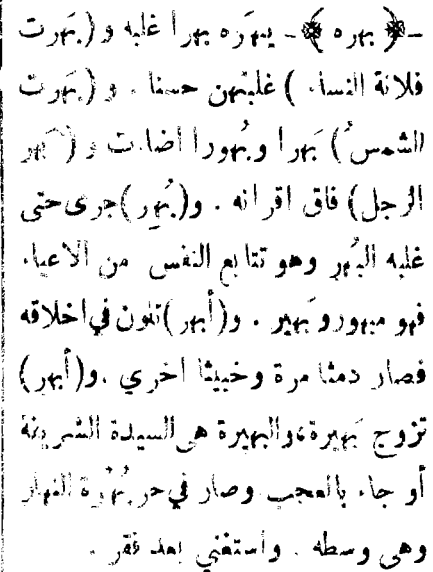 -﴿ بهره ﴾- يبهَره بهرا غلبه و (بَهرت
فلانة النساء ) غلبتهن حسنا . و (بَهرت
الشمسُ) بَهرا وبُهورا اضاءت و (بَهر
الرجل) فاق اقرانه . و(بُهِر)جرى حتى
غلبه البُهر وهو تتابع النفس من الاعياء
فهو مبهور وبَهير . و(أبهر)تلون في اخلاقه
فصار دمثا مرة وخبيثا اخري .و(أبهر)
تزوج بَهيرة،والبهيرة هى السيدة الشريفة
أو جاء بالعجب وصار في حر بُهْرة النهار
وهى وسطه . واستغني بعد فقر .